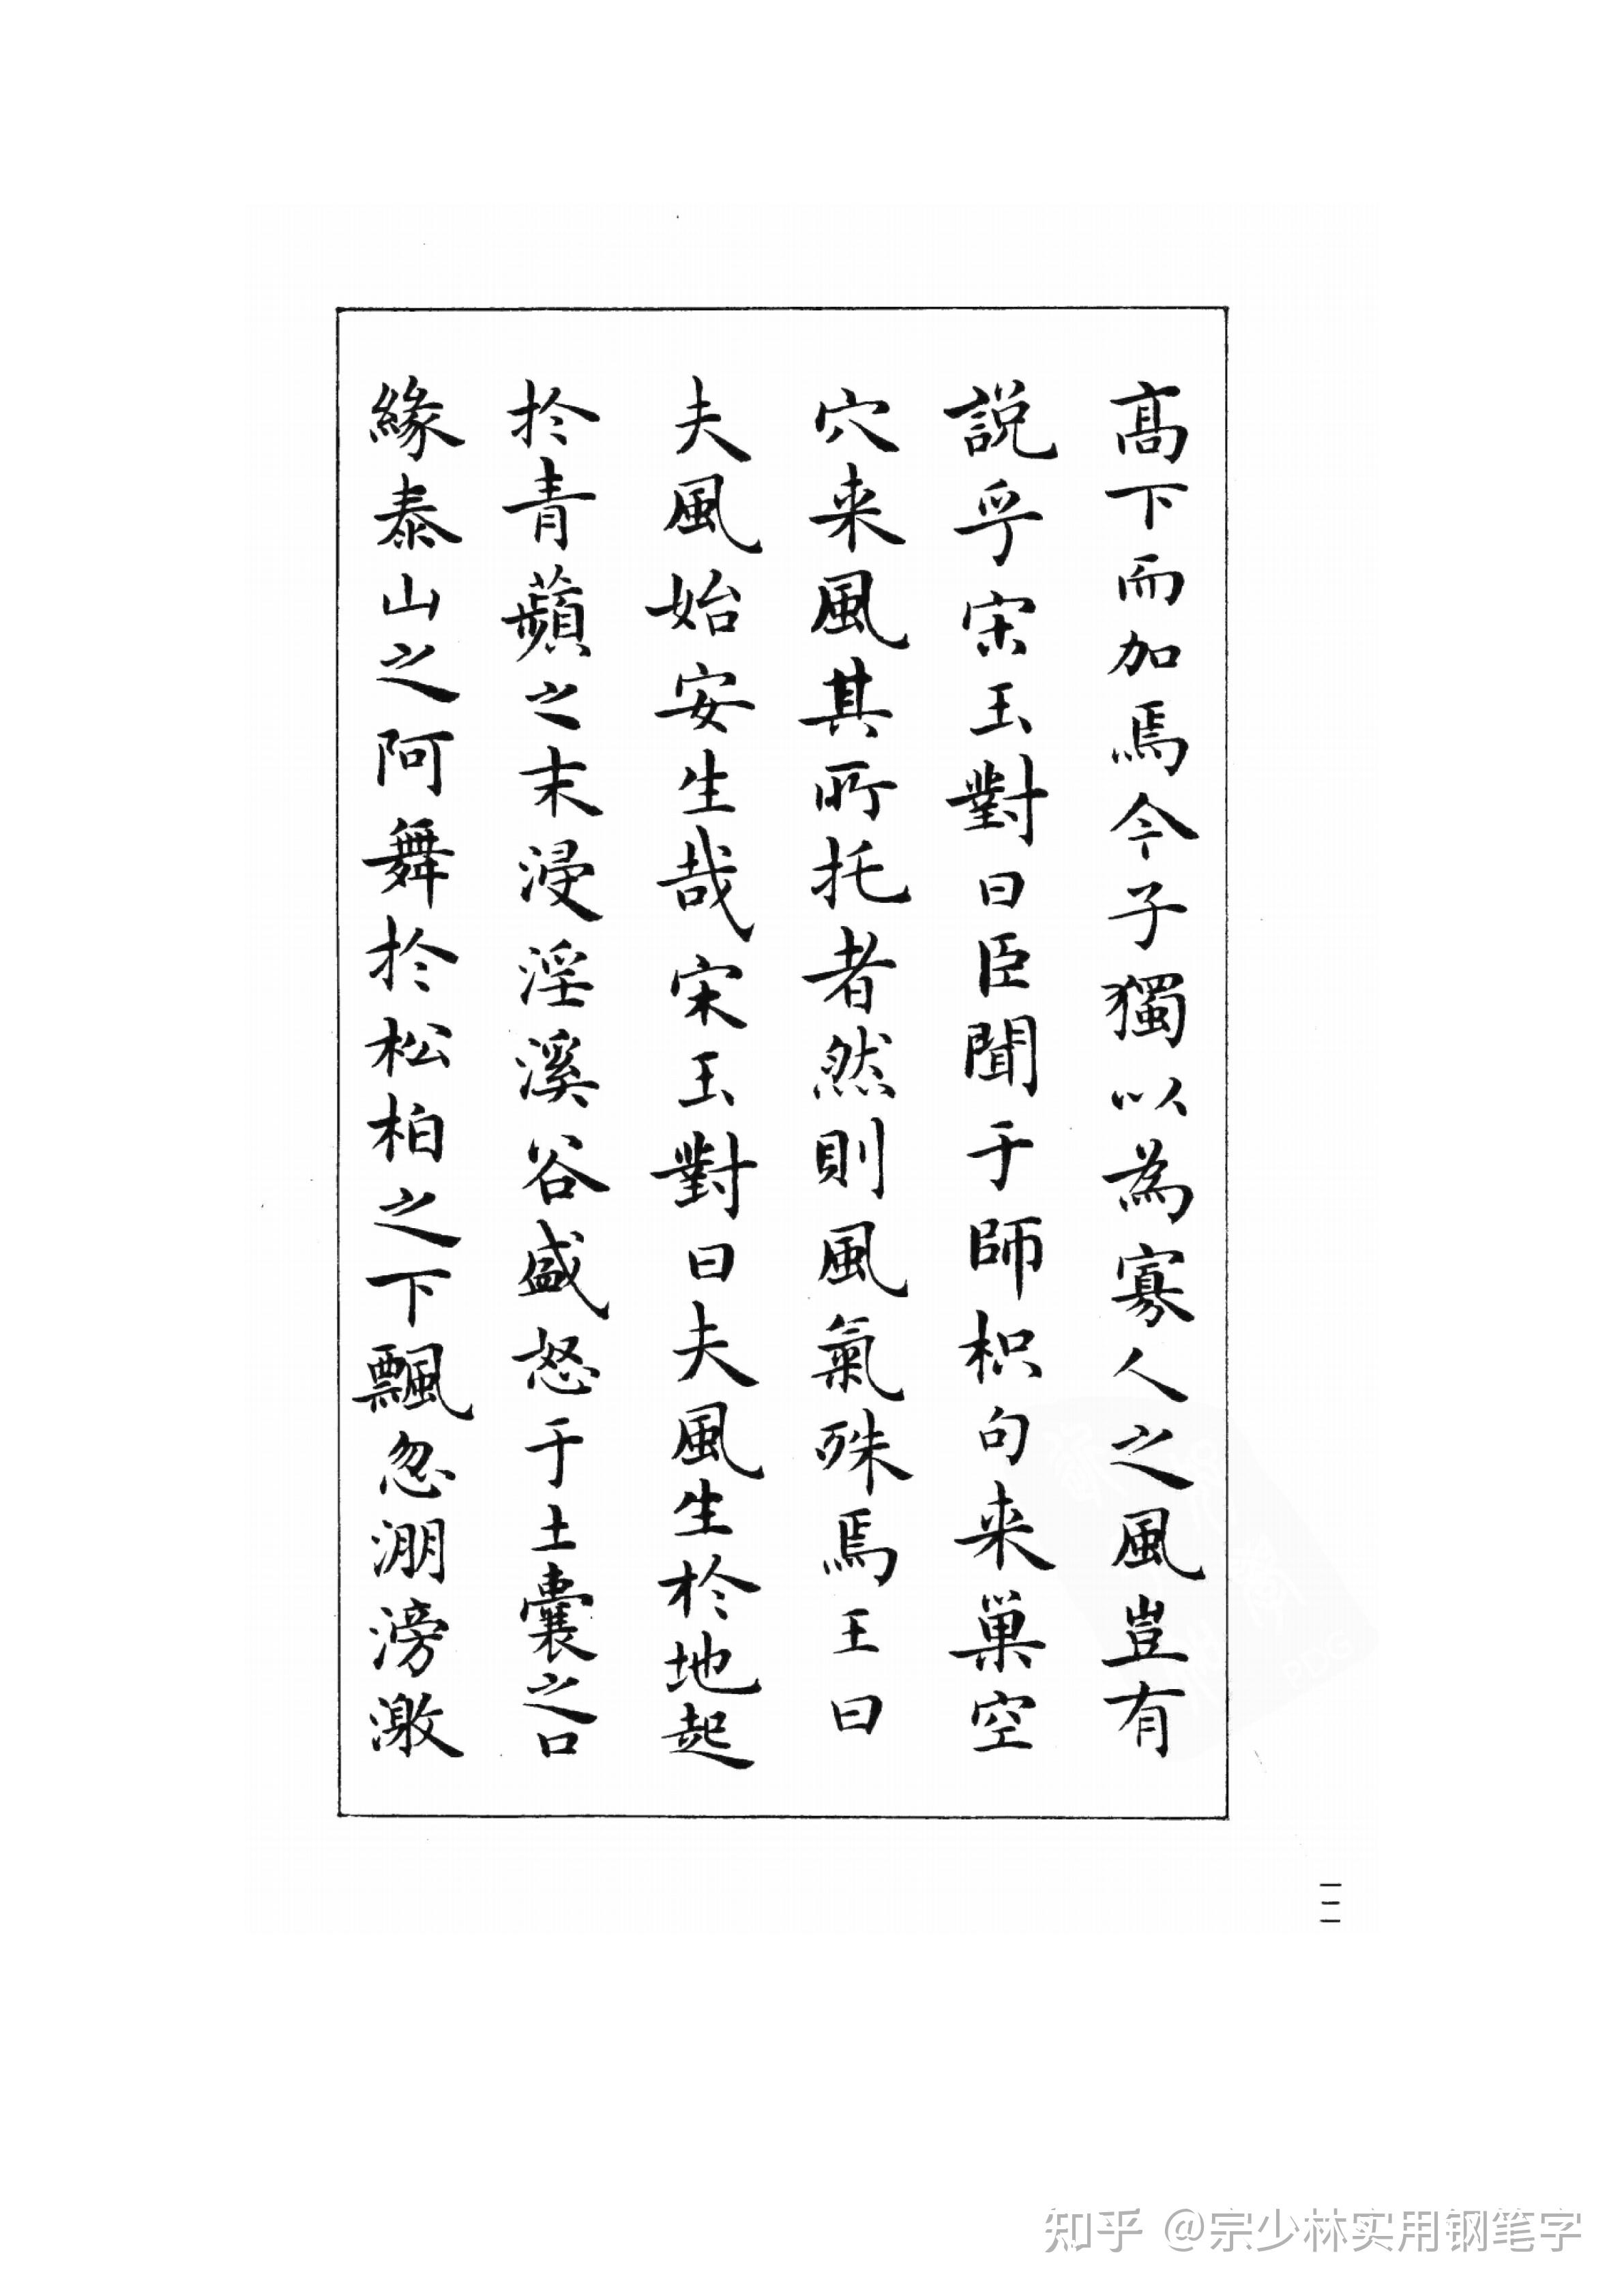 高下而加焉今子獨以為寡人之風豈有
説乎宋玉對曰臣聞于師枳句来巢空
穴来風其所托者然則風氣殊焉王曰
夫風始安生哉宋玉對曰夫風生於地起
於青蘋之末浸淫溪谷盛怒于土囊之口
緣泰山之阿舞於松柏之下飄忽淜滂激
一二
知乎 @宗少林实用钢笔字